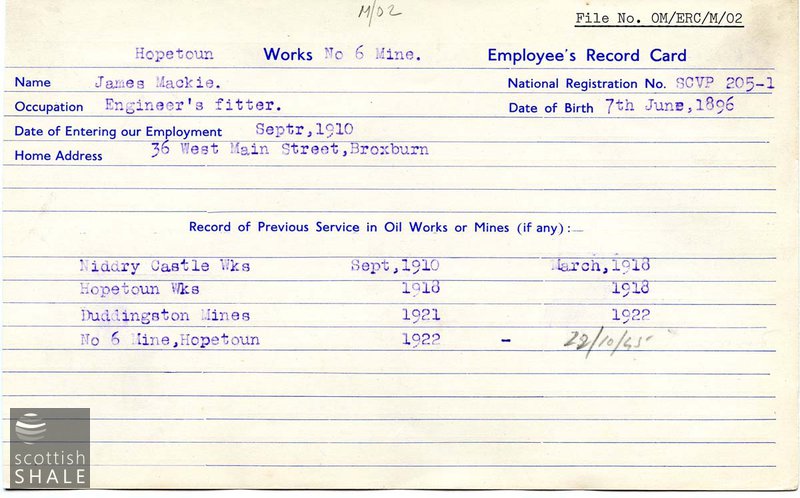 M/02
File No. OM/ERC/M/02
Hopetoun Works No 6 Mine. Employee's Record Card
Name James Mackie. National Registration No. SCVP 205-1
Occupation Engineer's fitter. Date of Birth 7th June,1896
Date of Entering our Employment Septr,1910
Home Address 36 West Main Street,Broxburn
Record of Previous Service in Oil Works or Mines (if any):—
Niddry Castle Wks Sept,1910 March,1918
Hopetoun Wks 1918 1918
Duddingston Mines 1921 1922
No 6 Mine,Hopetoun 1922 - 22/10/45
scottish
SHALE